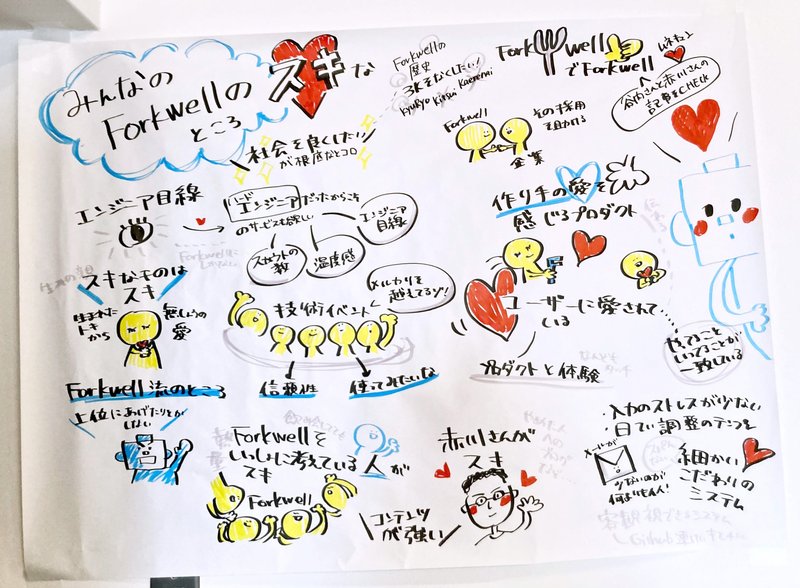 みんなの
Forkwellの
ところ
スキな
Forkwellの
歴史
3Kをなくしたい!
Kyukyo Kitsui Kaerenai
Forkwell
でForkwell
ムネキュン
谷内さんと赤川さんの
記事をCHECK
社会を良くしたい
が根底なトコロ
Forkwell
その採用
を助ける
企業
エンジニア目線
ハード
エンジニアだったからこそ
のサービスも欲しい
エンジニア
目線
スカウトの
数
温度感
作り手の愛を
感じるプロダクト
スキなモノは
スキ
生まれた
トキ
から
無しょうの
愛
メルカリを
越えてるゾ!
技術イベント
信頼性
使ってみたいな
ユーザーに愛されて
いる
プロダクトと体験
やってること
いってることが
一致している
Forkwell流のところ
上位にあげたりとか
しない
Forkwellを
いっしょに考えている人が
スキ
Forkwell
赤川さんが
スキ
コンテンツ
が強い
・入力のストレスが少ない
・日てい調整のテンプを
メールが
少ないのが
何よりもそん!
細かい
こだわりの
システム
客観視できるシステム